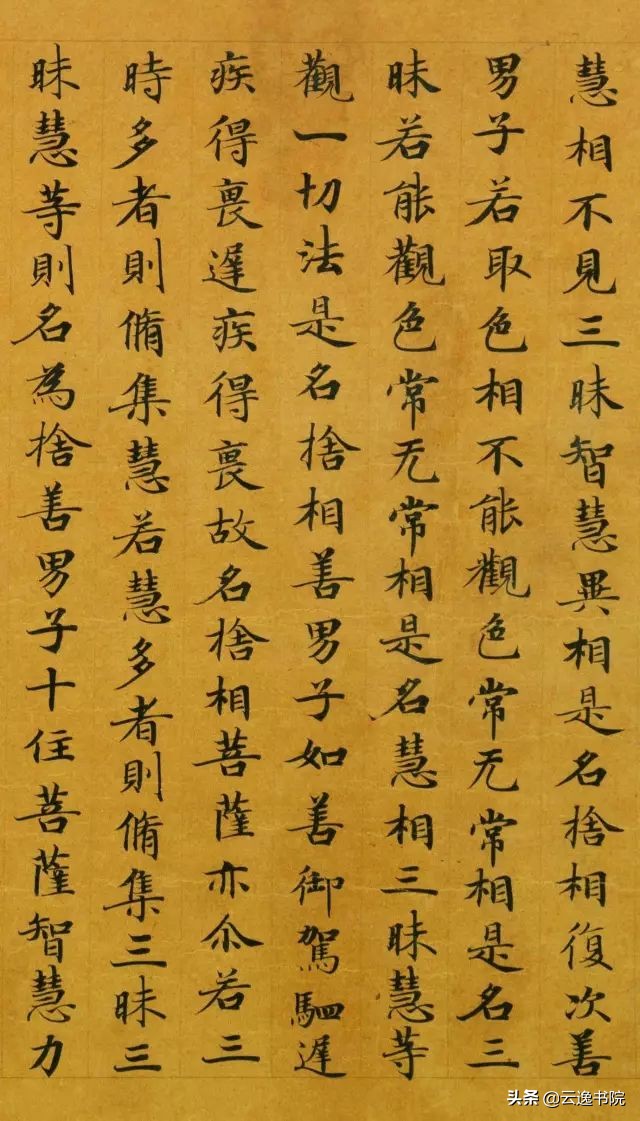 慧相不見三昧智慧異相是名捨相復次善
男子若取色相不能觀色常无常相是名三
昧若能觀色常无常相是名慧相三昧慧等
觀一切法是名捨相善男子如善御駕駟遲
疾得衺遲疾得衺故名捨相菩薩亦尒若三
時多者則脩集慧若慧多者則脩集三昧三
昧慧等則名為捨善男子十住菩薩智慧力
头条 @云逸书院